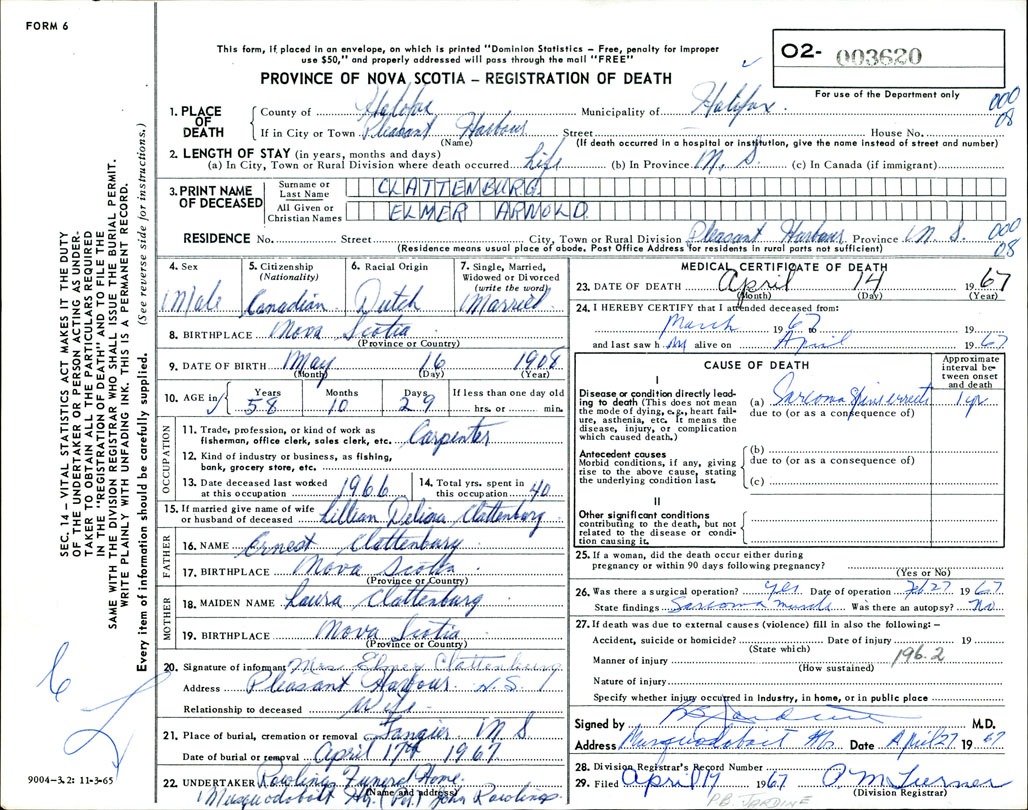 FORM 6
This form, if placed in an envelope, on which is printed "Dominion Statistics – Free, penalty for improper
use $50," and properly addressed will pass through the mail "FREE"
PROVINCE OF NOVA SCOTIA – REGISTRATION OF DEATH
O2- 003620
For use of the Department only
SEC. 14 – VITAL STATISTICS ACT MAKES IT THE DUTY
OF THE UNDERTAKER OR PERSON ACTING AS UNDER-
TAKER TO OBTAIN ALL THE PARTICULARS REQUIRED
IN THE "REGISTRATION OF DEATH" AND TO FILE THE
SAME WITH THE DIVISION REGISTRAR WHO SHALL ISSUE THE BURIAL PERMIT.
WRITE PLAINLY WITH UNFADING INK. THIS IS A PERMANENT RECORD.
Every item of information should be carefully supplied. (See reverse side for instructions.)
1. PLACE OF DEATH
County of Halifax Municipality of Halifax 000
08
If in City or Town Pleasant Harbour Street House No.
(Name) (If death occurred in a hospital or institution, give the name instead of street and number)
2. LENGTH OF STAY (in years, months and days)
(a) In City, Town or Rural Division where death occurred life (b) In Province N. S. (c) In Canada (if immigrant)
3. PRINT NAME OF DECEASED
Surname or Last Name CLATTENBURG
All Given or Christian Names ELMER ARNOLD
RESIDENCE No. Street City, Town or Rural Division Pleasant Harbour Province N. S. 000
08
(Residence means usual place of abode. Post Office Address for residents in rural parts not sufficient)
4. Sex Male
5. Citizenship (Nationality) Canadian
6. Racial Origin Dutch
7. Single, Married, Widowed or Divorced (write the word) Married
8. BIRTHPLACE Nova Scotia
(Province or Country)
9. DATE OF BIRTH May 16 1908
(Month) (Day) (Year)
10. AGE in Years 58 Months 10 Days 29 If less than one day old hrs. or min.
OCCUPATION
11. Trade, profession, or kind of work as fisherman, office clerk, sales clerk, etc. Carpenter
12. Kind of industry or business, as fishing, bank, grocery store, etc.
13. Date deceased last worked at this occupation 1966
14. Total yrs. spent in this occupation 40
15. If married give name of wife or husband of deceased Lillian Clattenburg
FATHER
16. NAME Ernest Clattenburg
17. BIRTHPLACE Nova Scotia
(Province or Country)
MOTHER
18. MAIDEN NAME Laura Clattenburg
19. BIRTHPLACE Nova Scotia
(Province or Country)
20. Signature of informant Mrs Elmer Clattenburg
Address Pleasant Harbour N.S.
Relationship to deceased Wife
21. Place of burial, cremation or removal Tangier N S
Date of burial or removal April 17th 1967
22. UNDERTAKER Rawlings Funeral Home
(Name and address)
Musquodoboit Hb. (per) John Rawlings
9004-3.2: 11-3-65
MEDICAL CERTIFICATE OF DEATH
23. DATE OF DEATH April 14 1967
(Month) (Day) (Year)
24. I HEREBY CERTIFY that I attended deceased from:
March 1967 to 19
and last saw h im alive on April 1967
CAUSE OF DEATH
Approximate interval between onset and death
I
Disease or condition directly leading to death (This does not mean the mode of dying, e.g., heart failure, asthenia, etc. It means the disease, injury, or complication which caused death.)
(a) Sarcoma 1 yr
due to (or as a consequence of)
Antecedent causes
Morbid conditions, if any, giving rise to the above cause, stating the underlying condition last.
(b)
due to (or as a consequence of)
(c)
II
Other significant conditions
contributing to the death, but not related to the disease or condition causing it.
25. If a woman, did the death occur either during pregnancy or within 90 days following pregnancy?
(Yes or No)
26. Was there a surgical operation? yes Date of operation Feb 27 1967
State findings Sarcoma muscle Was there an autopsy? No
27. If death was due to external causes (violence) fill in also the following: –
Accident, suicide or homicide? Date of injury 19
(State which)
Manner of injury 196.2
(How sustained)
Nature of injury
Specify whether injury occurred in industry, in home, or in public place
Signed by P B Jardine M.D.
Address Musquodoboit Hb. Date April 27 1967
28. Division Registrar's Record Number
29. Filed April 17 1967 O. M. Turner
(Division Registrar)
P.B. JARDINE